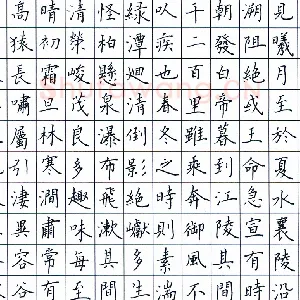 見曦月至於夏水襄陵沿
溯阻絕或王命急宣有時
朝發白帝暮到江陵其間
千二百里雖乘奔御風不
以疾也春冬之時則素湍
綠潭廻清倒影絕巘多生
怪柏懸泉瀑布飛漱其間
清榮峻茂良多趣味每至
晴初霜旦林寒澗肅常有
高猿長嘯屬引淒異容谷